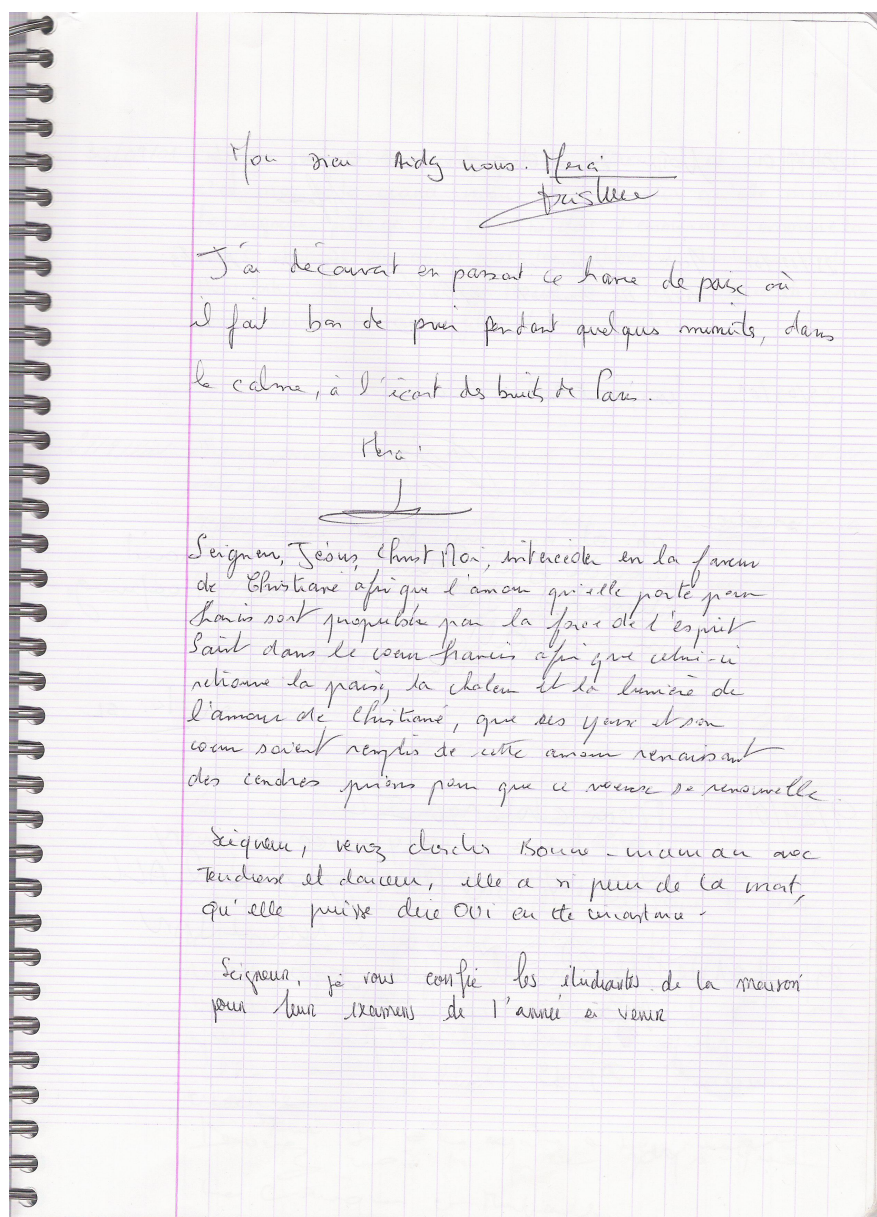 Mon Dieu Aidez nous. Merci
J'ai découvert en passant ce havre de paix où
il fait bon de prier pendant quelques minutes, dans
le calme, à l'écart des bruits de Paris.
Merci
Seigneur, Jésus, Christ Roi, intercéder en la faveur
de Christiane afin que l'amour qu'elle porte pour
francis sont propulsée par la force de l'esprit
Saint dans le coeur francis afin que celui-ci
retrouve la paix, la chaleur et la lumière de
l'amour de Christiane, que ses yeux et son
coeur soient remplis de cette amour renaissant
des cendres prions pour que ce voeux se renouvelle.
Seigneur, venez chercher Bonne-maman avec
Tendresse et douceur, elle a si peur de la mort,
qu'elle puisse dire OUI en cette circonstance -
Seigneur, je vous confie les étudiantes de la maison
pour leur examens de l'année à venir